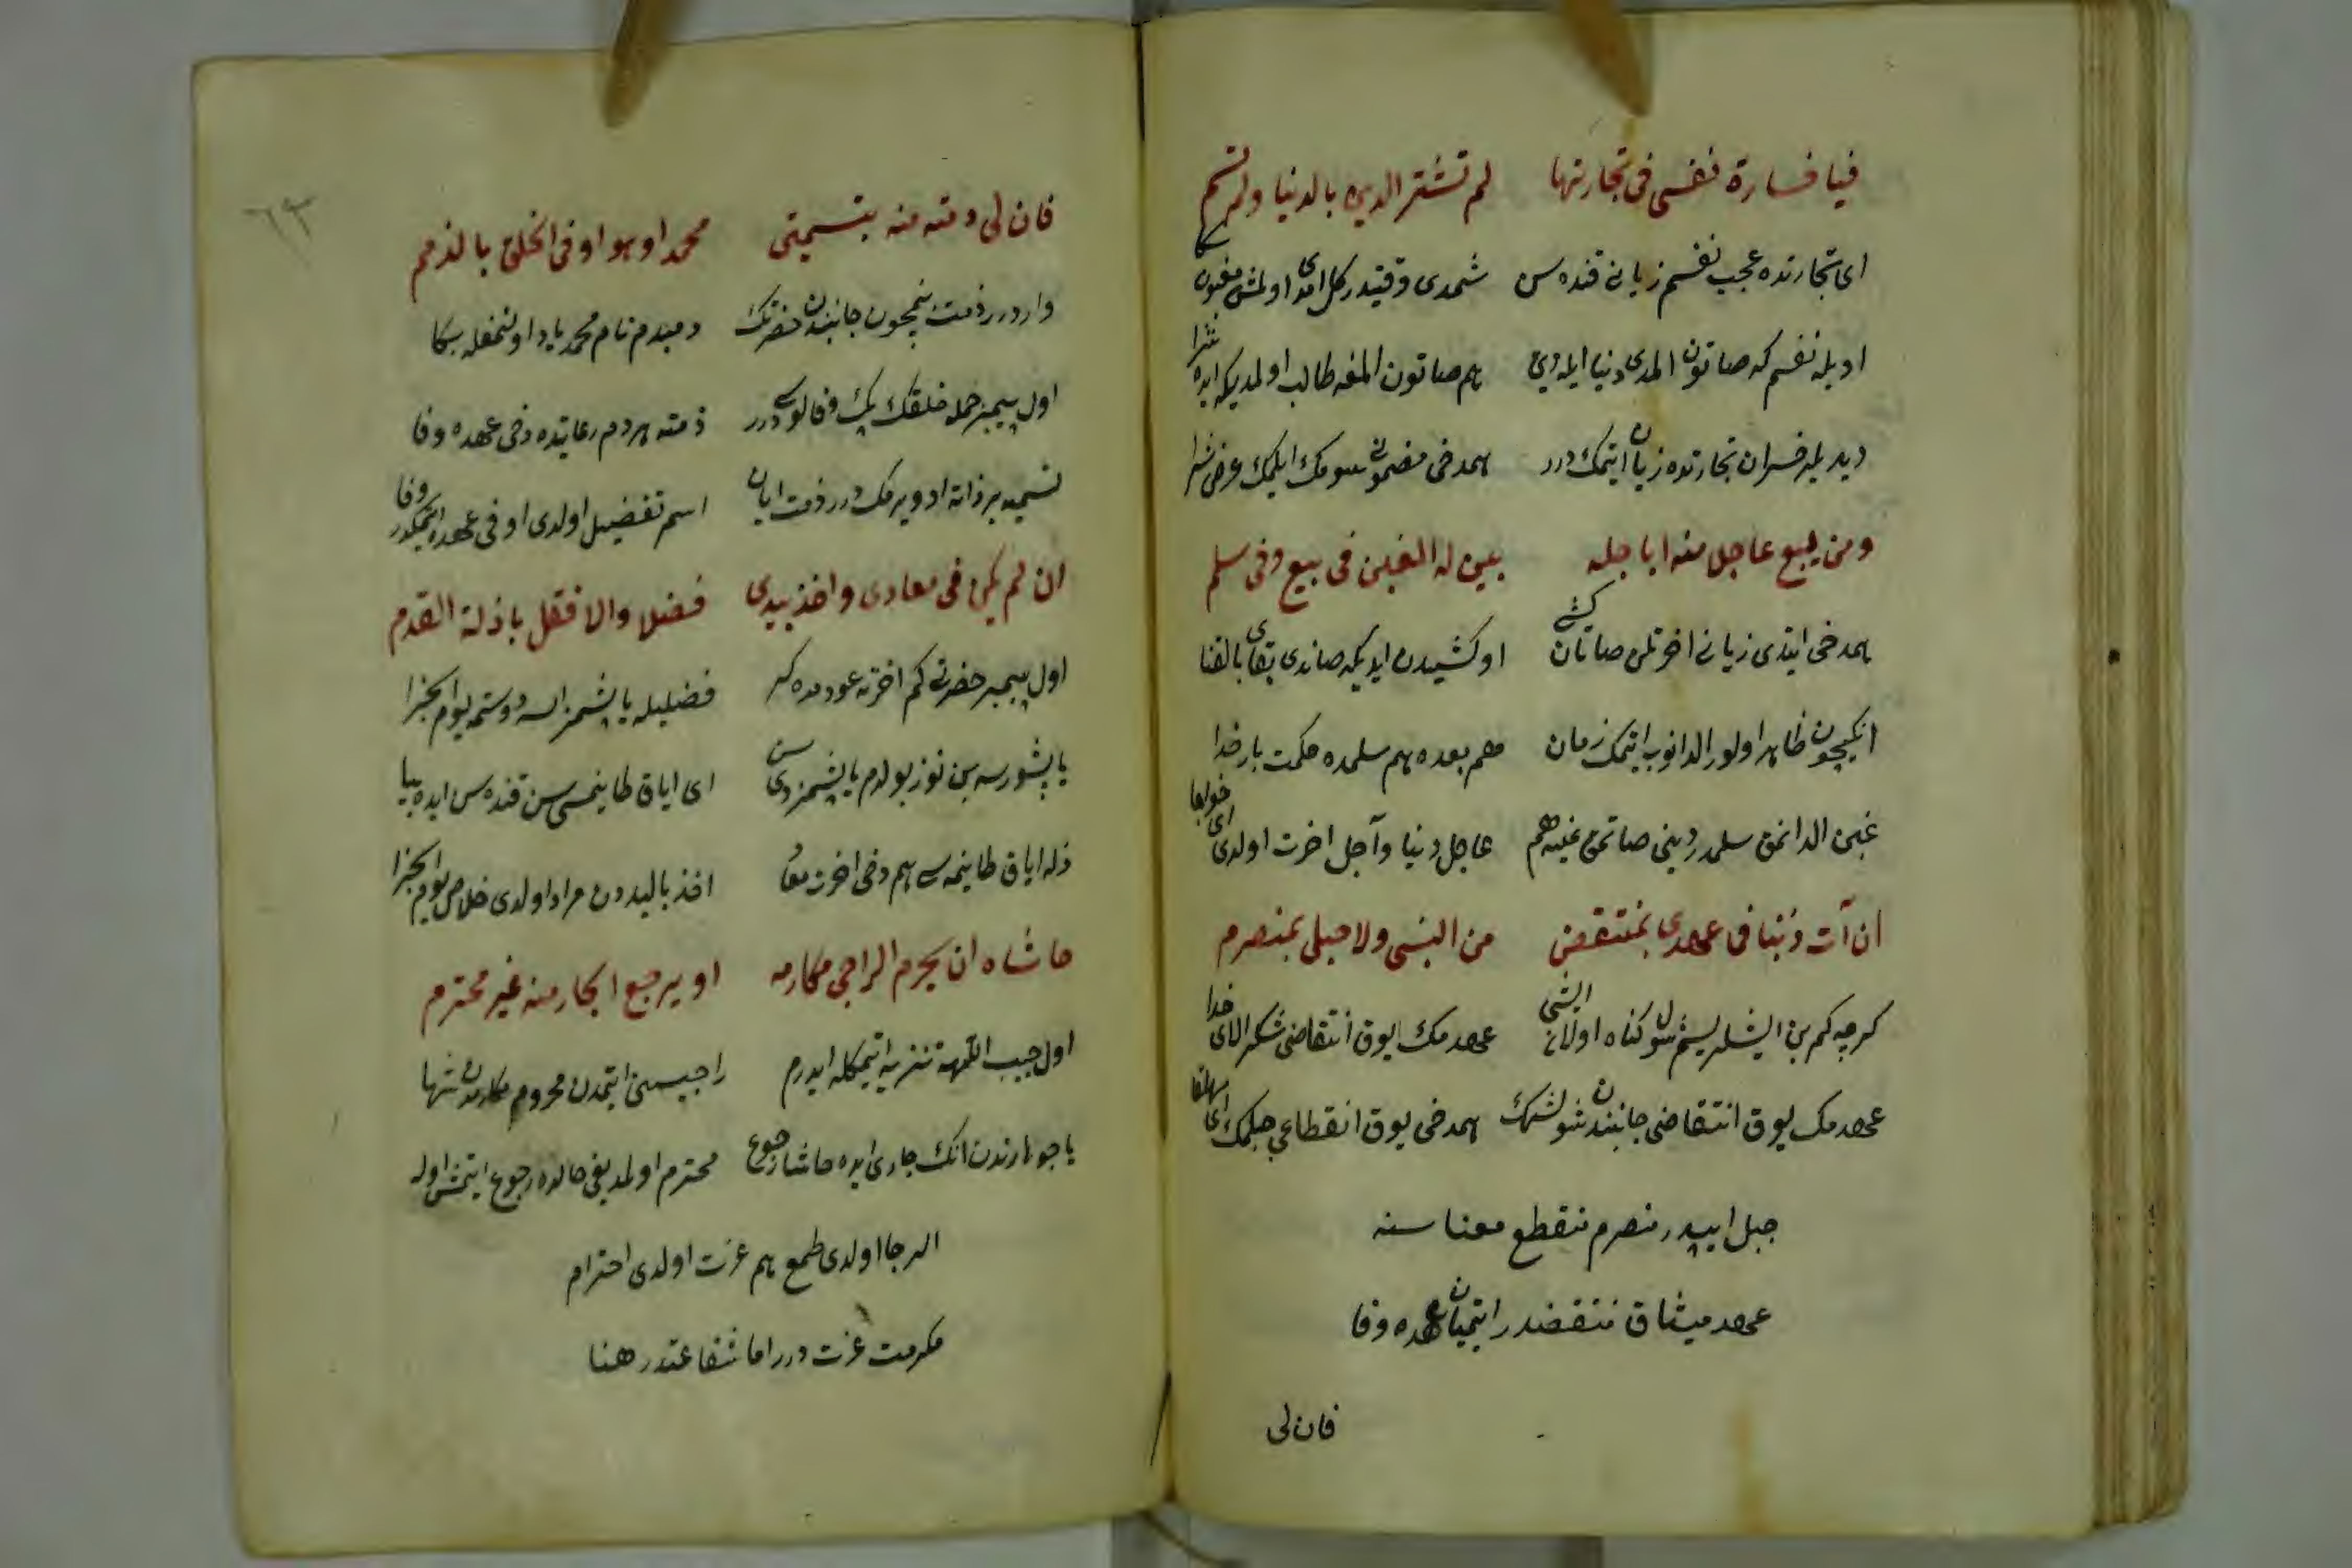 فيا خسارة نفسى فى تجارتها لم تشتر الدين بالدنيا ولم تسم
اى تجارتده عجب نفسم زيانى قنده سن شمدى وقتيدر كل امدى اولمش مغبون
اويله نفسم كه صاتون المدى دنيا ايله دين هم صاتون المغه طالب اولمديكه ايده شرا
ديديلر خسران تجارتده زيان ايتمك درر همدخى مضمونى سومك ايلمك عرض شرا
ومن يبع عاجلا منه اباجله يبن له الغبن فى بيع وفى سلم
همدخى ايتدى زيانى اخرتن صاتان كشى او كشيدن ايديكه صاندى بقاى بالفنا
انكيچون ظاهر اولور الدانوب ايتمك زمان هم بعده هم سلمده حكمت بار خدا
غبن الدانمق سلمدر دينى صاتمق غينه هم عاجل دنيا وآجل اخرت اولدى اى
ان آت ذنبا فى عهدى بمنتقض من النبى ولا حبلى بمنصرم
كرچه كم بن ايشلريسم شول كناه اولانى ايشى عهدمك يوق انتقاضى شكر الاى خدا
عهدمك يوق انتقاضى جانبندن شولشهك همدخى يوق انقطاعى حبلمك اى
حبل ايپدر منصرم منقطع معنا سنه
عهد ميثاق منتقضدر ايتميان عهده وفا
فان لى
٦٣
فان لى ذمته منه بتسميتى محمدا وهو اوفى الخلق بالذمم
واردرر ذمت بنمچون جانبندن حضرتك دمبدم نام محمد ياد اولنمغله بكا
اول پيمبر جمله خلقك پك وفالوسى درر ذمته هردم رعايتده دخى عهده وفا
تسميه بر ذاته اد ويرمك درر ذمت ايان اسم تفضيل اولدى اوفى عهده ايتمكدر وفا
ان لم يكن فى معادى واخذ بيدى فضلا والا فقل يا زلة القدم
اول پيمبر حضرتى كم اخرته عودمده كر فضليله ياپشمز السه دوستمه يوم الجزا
ياپشورسه بن نوز بولدم ياپشمزدى سن اى اياق طاينمسى سن قنده سن ايده بيا
زله اياق طاينمه سى هم دخى اخرت معا اخذ باليددن مراد اولدى خلاص يوم الجزا
حاشاه ان يحرم الراجى مكارمه او يرجع الجار منه غير محترم
اول حبيب اللهه تنزيه ايتمكله ايدرم راجيسنى ايتمدن محروم مكارمدن شها
يا جوارندن انك جارى ايده حاشا رجوع محترم اولمديغى حالده رجوع ايتمش اوله
الرجا اولدى طمع هم عزت اولدى احترام
مكرمت عزت درر اما شفاعتدر هنا